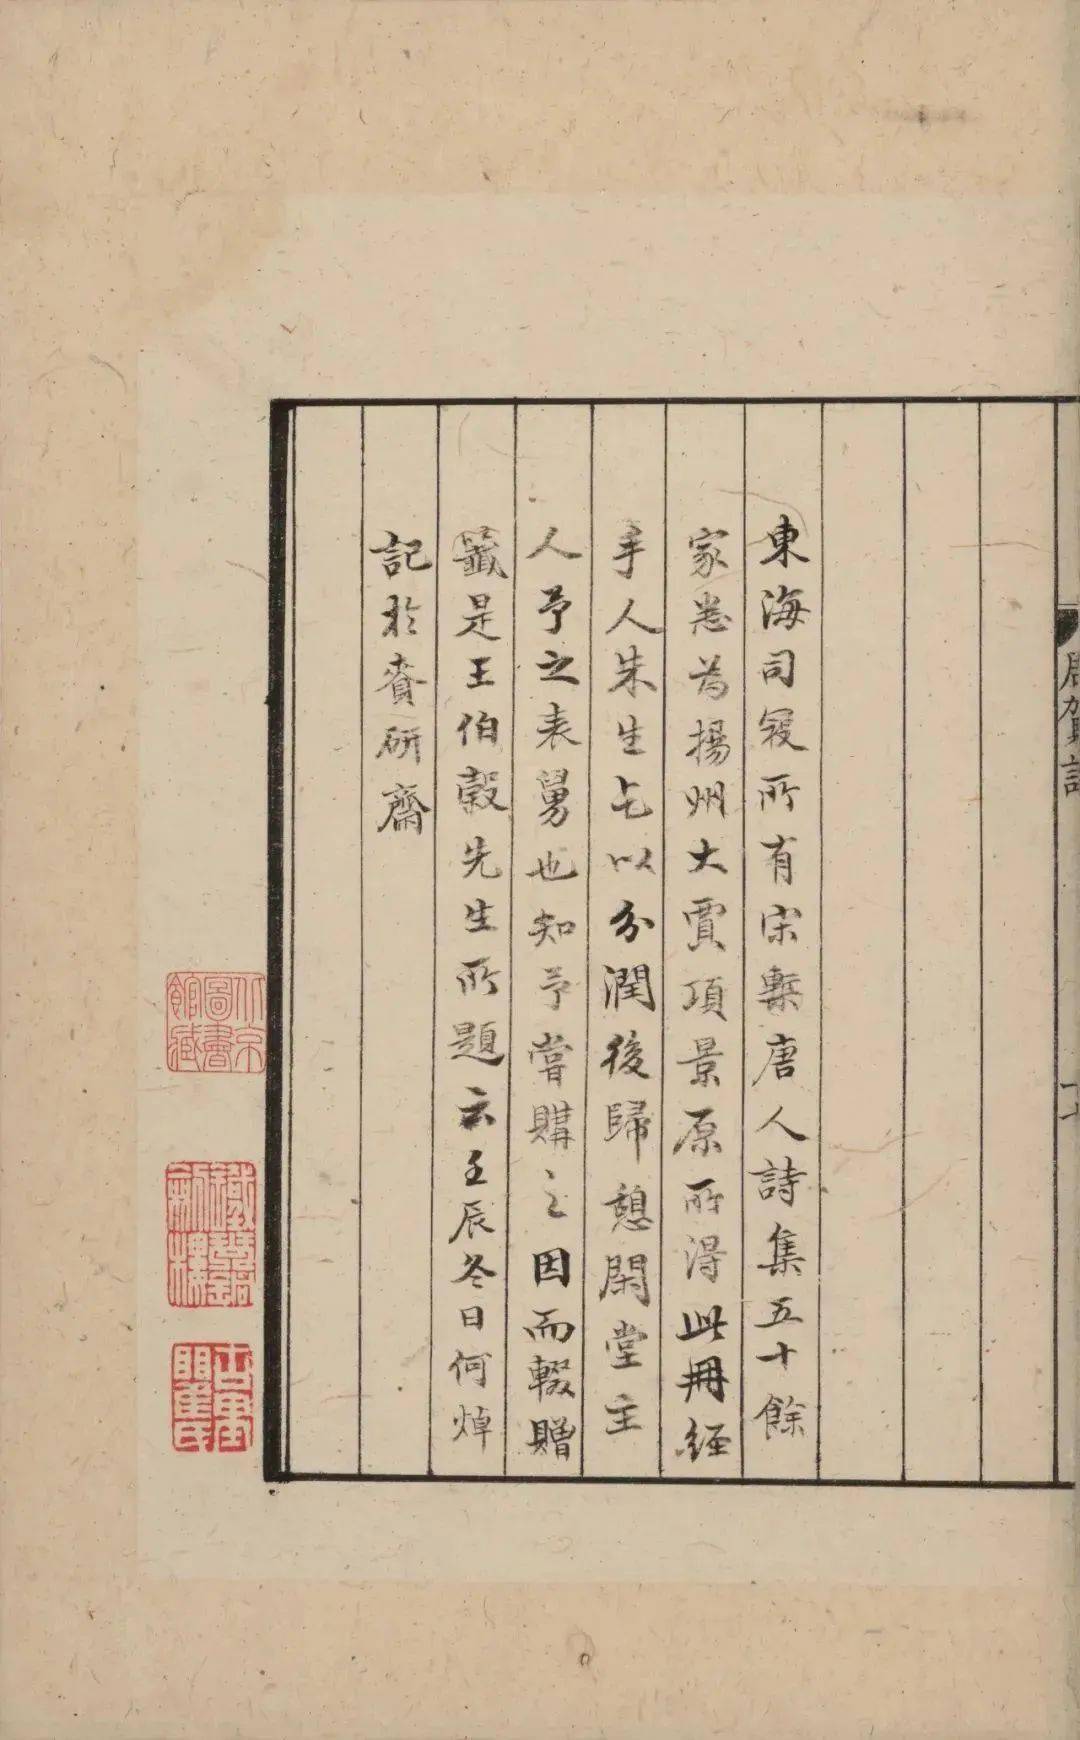 周賀詩
東海司寇所有宋槧唐人詩集五十餘
家悉為揚州大賈項景原所得此冊經
手人朱生乞以分潤後歸憩閑堂主
人予之表舅也知予嘗購之因而輟贈
籤是王伯穀先生所題云壬辰冬日何焯
記於賚研齋
北京圖書館藏
鐵琴銅劍樓